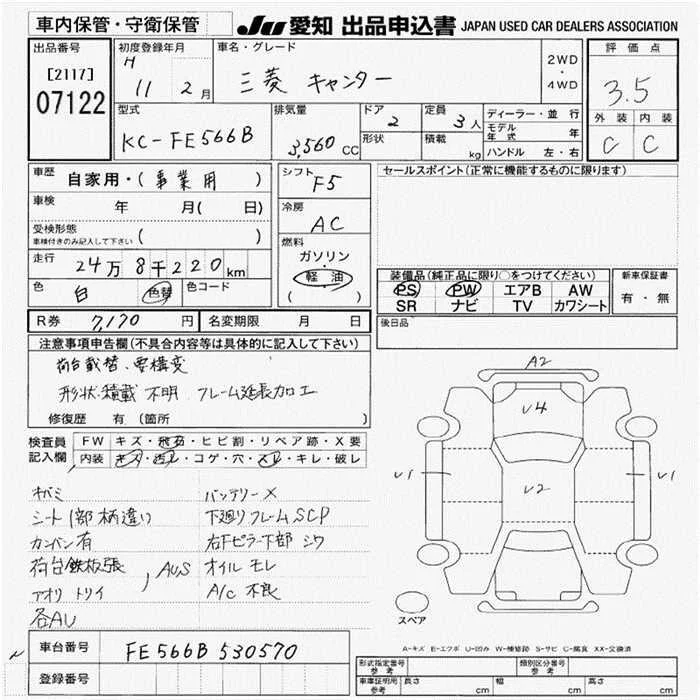 車内保管・守衛保管
JU 愛知 出品申込書 JAPAN USED CAR DEALERS ASSOCIATION
出品番号
[2117]
07122
初度登録年月
H 11 2 月
車名・グレード
三菱 キャンター
2WD
・
4WD
評価点
3.5
外装 内装
C C
型式
KC-FE566B
排気量
3,560 CC
ドア
2
形状
定員
3 人
積載
kg
ディーラー・並行
モデル年式 年
ハンドル 左・右
車歴
自家用・(事業用)
車検 年 月( 日)
受検形態
車検付きのみ記入して下さい ( )
走行 24万8千220km
色 白 色替 色コード
シフト
F5
冷房
AC
燃料
ガソリン
軽油
( )
セールスポイント(正常に機能するものに限ります)
装備品(純正品に限り○をつけてください)
PS PW エアB AW
SR ナビ TV カワシート
新車保証書
有・無
後日品
R券 7,170 円 名変期限 月 日
注意事項申告欄(不具合内容等は具体的に記入して下さい)
荷台載替、要構変
形状・積載 不明 フレーム延長加工
修復歴 有(箇所 )
検査員記入欄
FW キズ・飛石・ヒビ割・リペア跡・X要
内装 キズ・汚レ・コゲ・穴・スレ・キレ・破レ
シート1部柄違い
カンバン有
荷台鉄板張
アオリ トリイ , AUS
各AU
バッテリーX
下廻りフレームSCP
右Fピラー下部 シワ
オイル モレ
A/C 不良
A2
U4
U1
U2
U1
スペア
A-キズ E-エクボ U-凹み W-補修跡 S-サビ C-腐食 XX-交換済
車台番号 FE566B 530570
登録番号
形式指定番号
参考
類別区分番号
参考
車庫証明用
参考
長さ cm 幅 cm 高さ cm